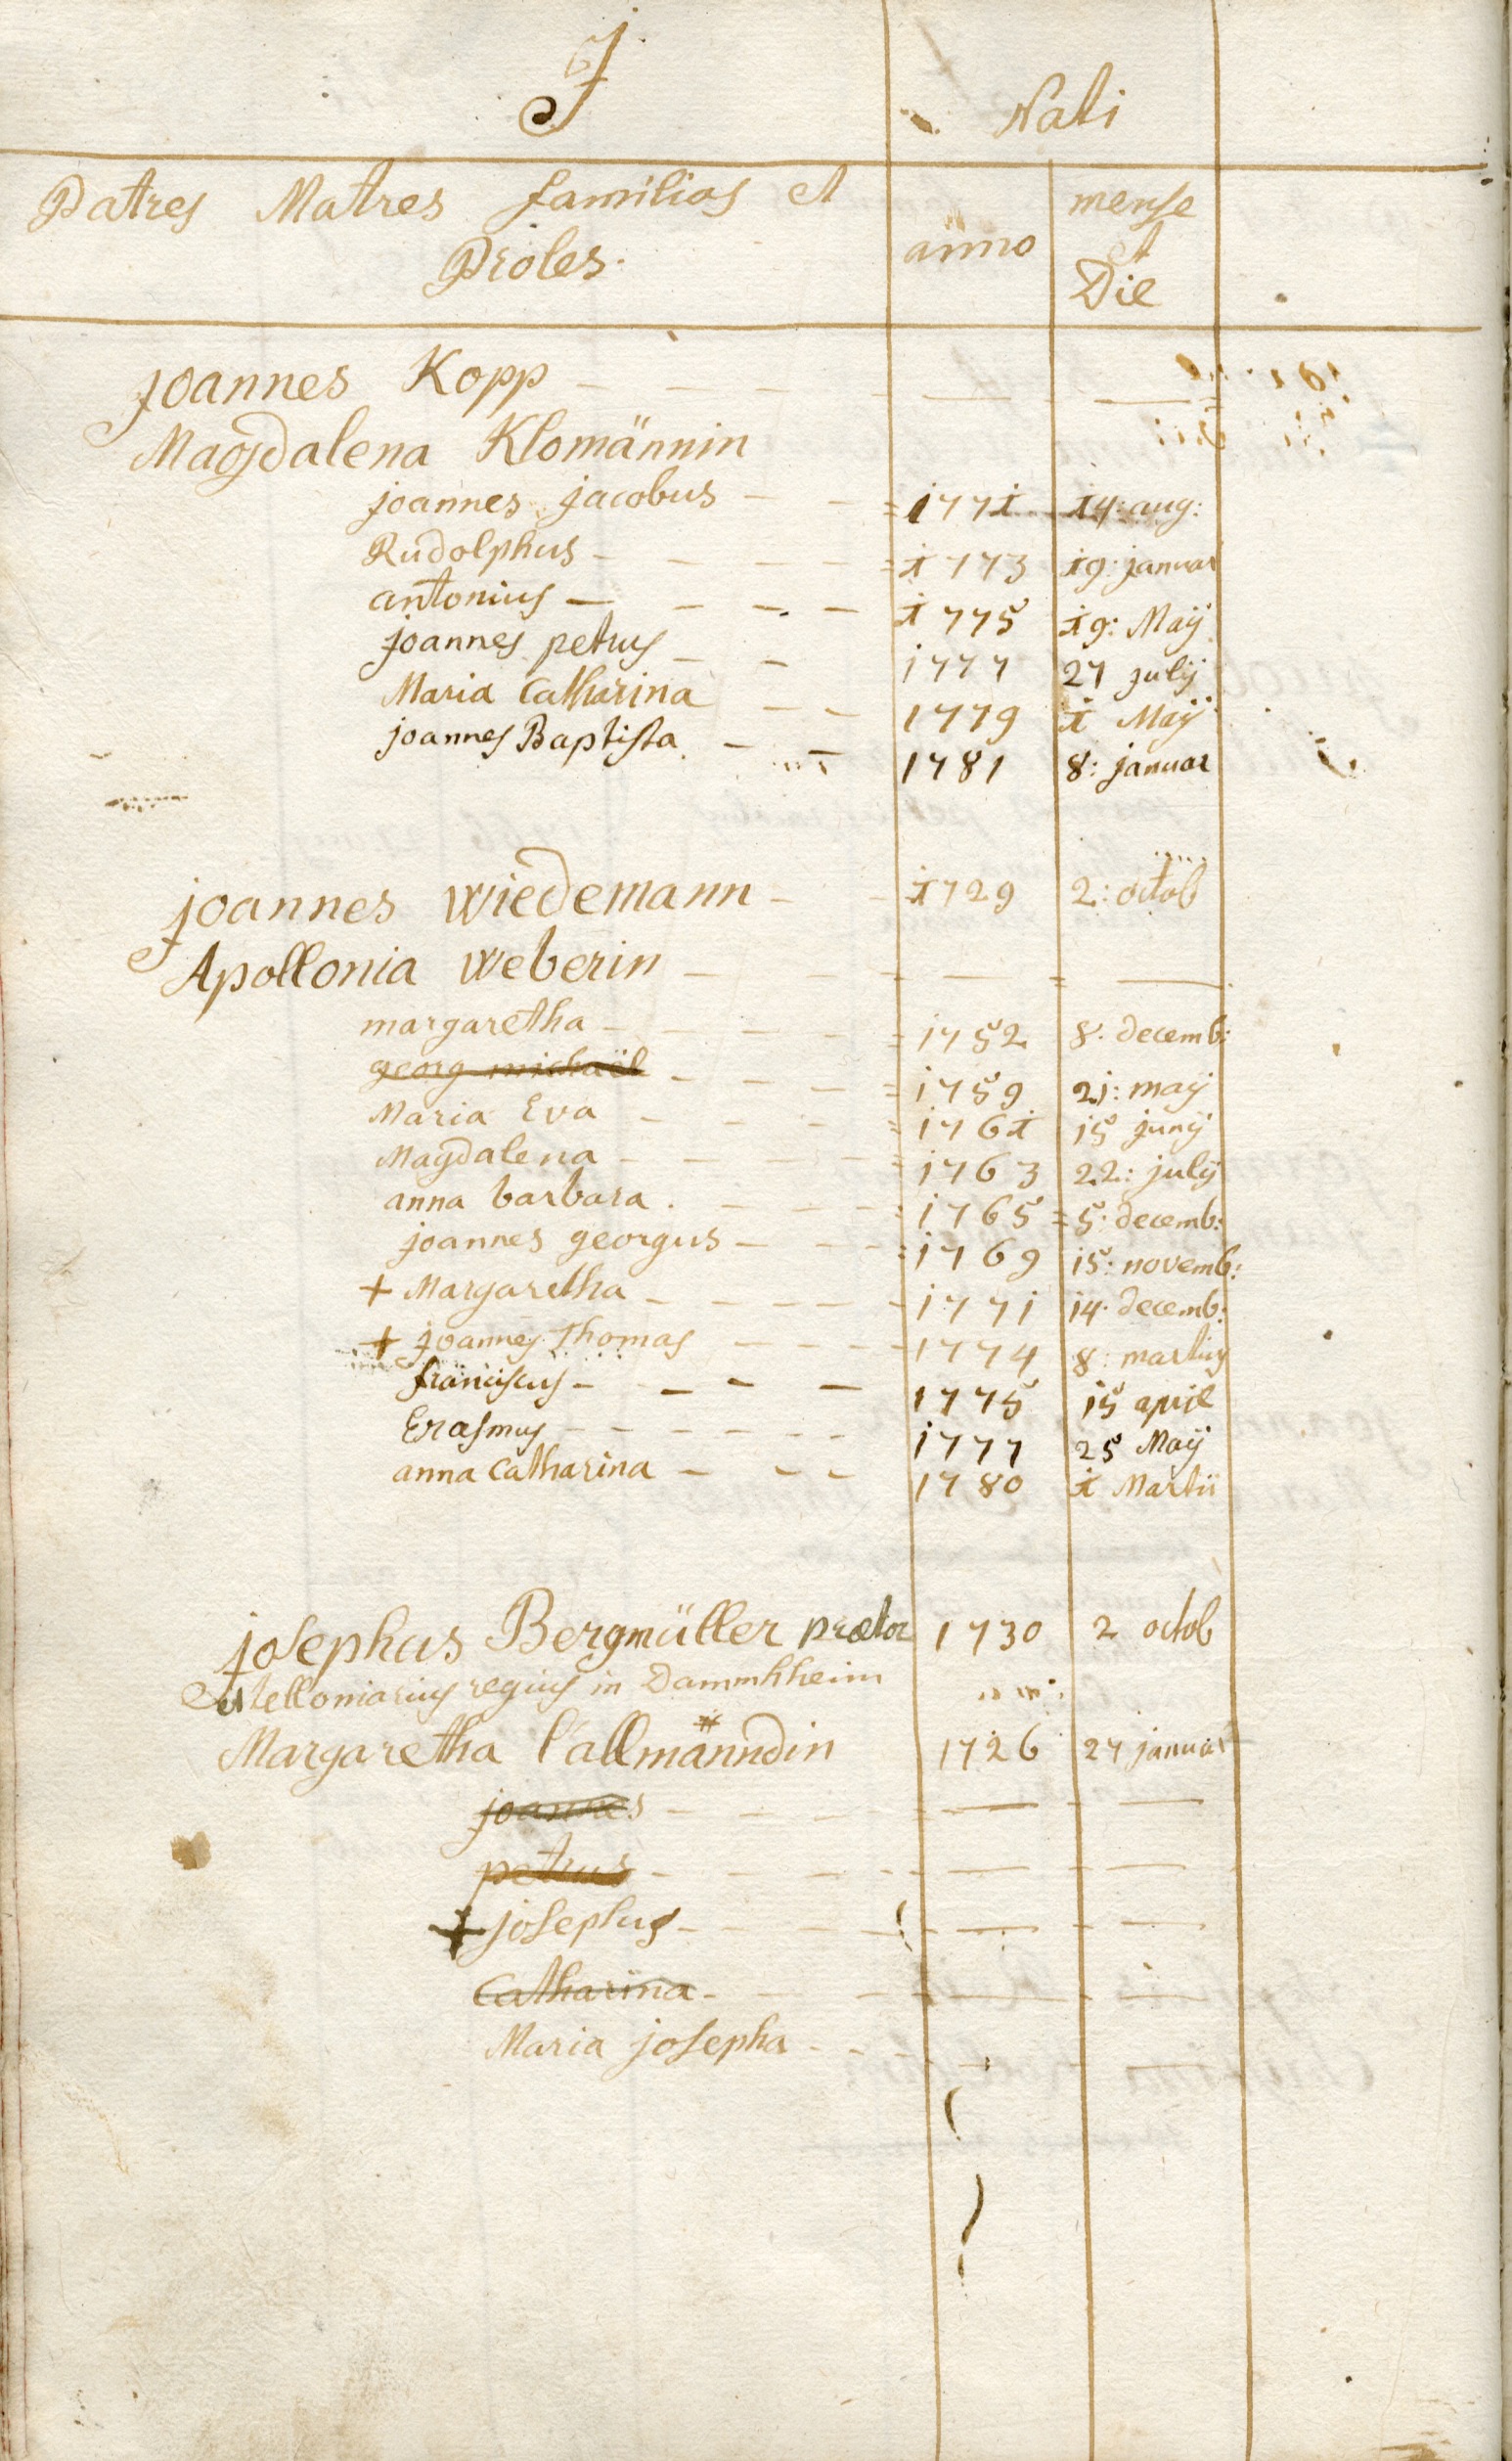 J Nati
Patres Matres familias et anno mense
Proles. et
Die
Joannes Kopp - - -
Magdalena Klomännin
joannes jacobus - - 1771 14: aug:
Rudolphus - - - - 1773 19: januar
antonius - - - - 1775 19: Maij
joannes petrus - - 1777 27 julij
Maria Catharina - - 1779 1 Maij
joannes Baptista - - 1781 8: januar
joannes Wiedemann - - 1729 2: octob
Apollonia Weberin - - - -
margaretha - - - - 1752 8. decemb:
georg michaël - - - 1759 21: maij
Maria Eva - - - 1761 15 junij
Magdalena - - - - 1763 22: julij
anna barbara . - - - 1765 5: decemb:
joannes georgus - - - 1769 15: novemb:
+ Margaretha - - - - 1771 14. decemb:
+ joannes Thomas - - - - 1774 8: martius
franciscus - - - - 1775 15 april
Erasmus - - - - - - 1777 25 Maij
anna Catharina - - - 1780 1 Martii
josephus Bergmüller prætor 1730 2 octob
et telloniarius regius in Dammhheim
Margaretha Callmänndin 1726 27 januar
joannes - - - -
petrus - - - -
+ josephus - - - -
Catharina - - - -
Maria josepha - - -